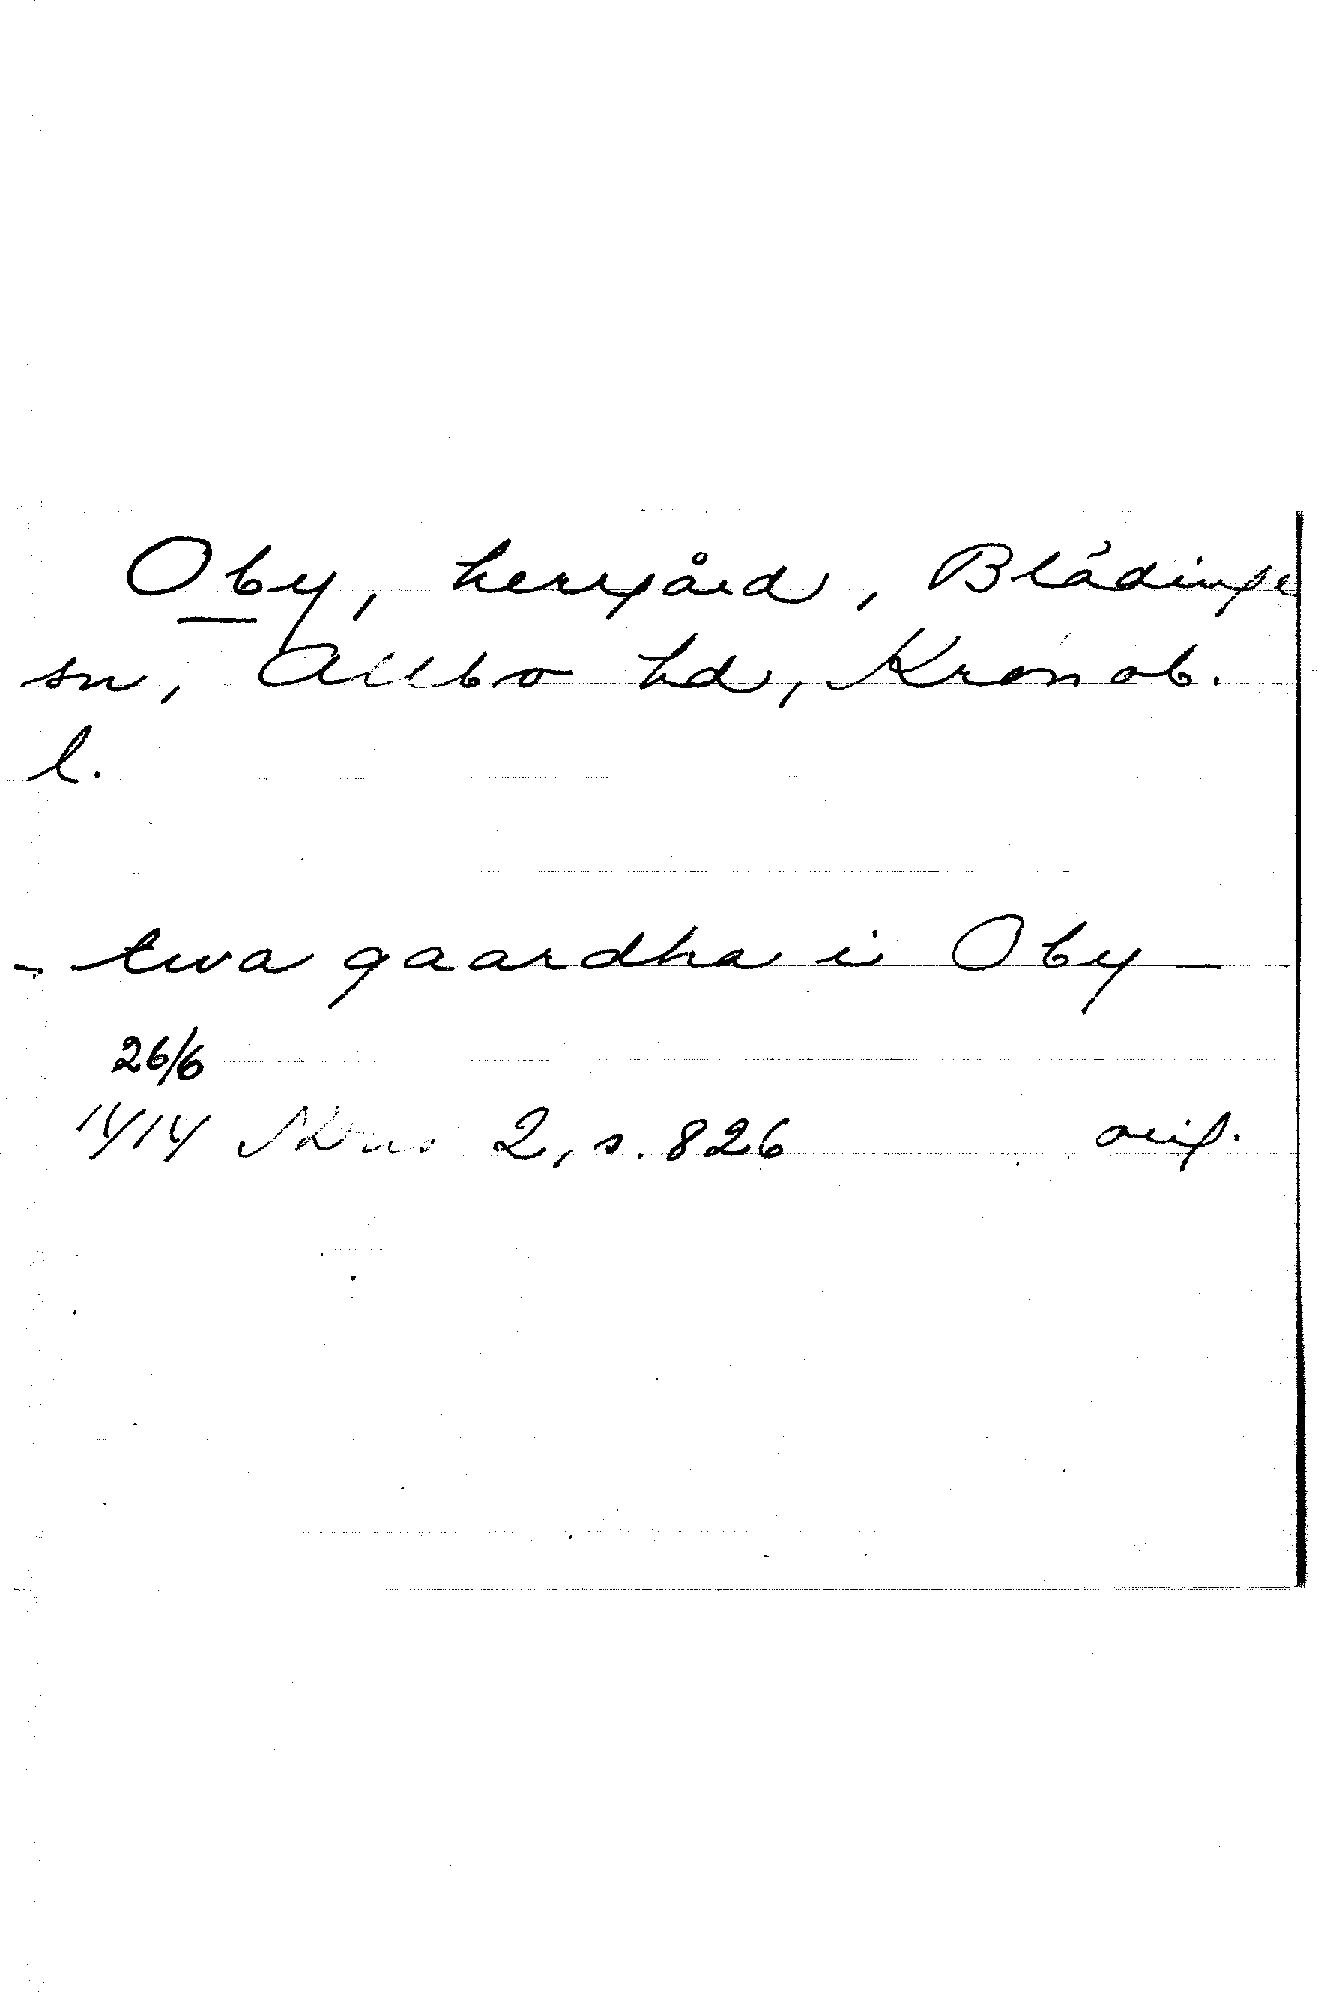 Oby, herrgård, Blädinge
sn, Allbo hd, Kronob.
l.
- twa gaardha i Oby -
26/6
1414 NDns 2, s. 826 orig.